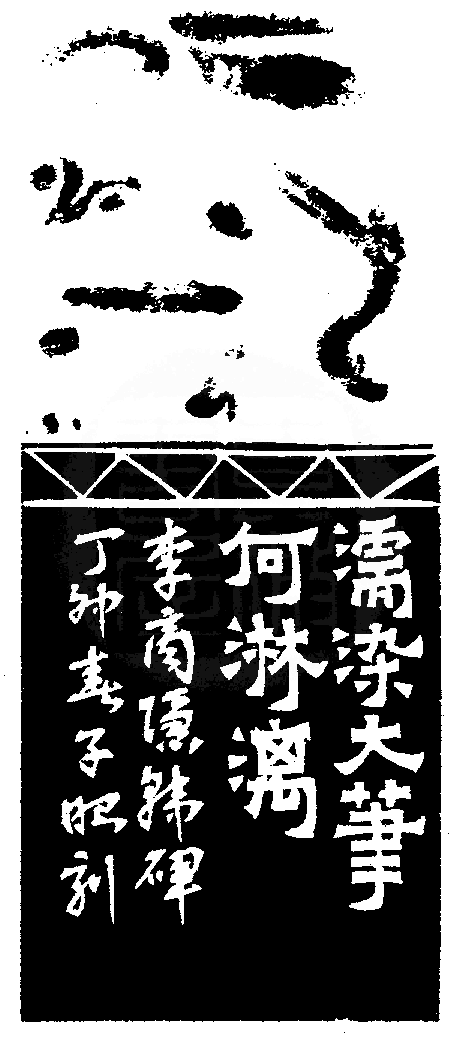 濡染大筆
何淋漓
李商隱韓碑
丁卯春子昭刻